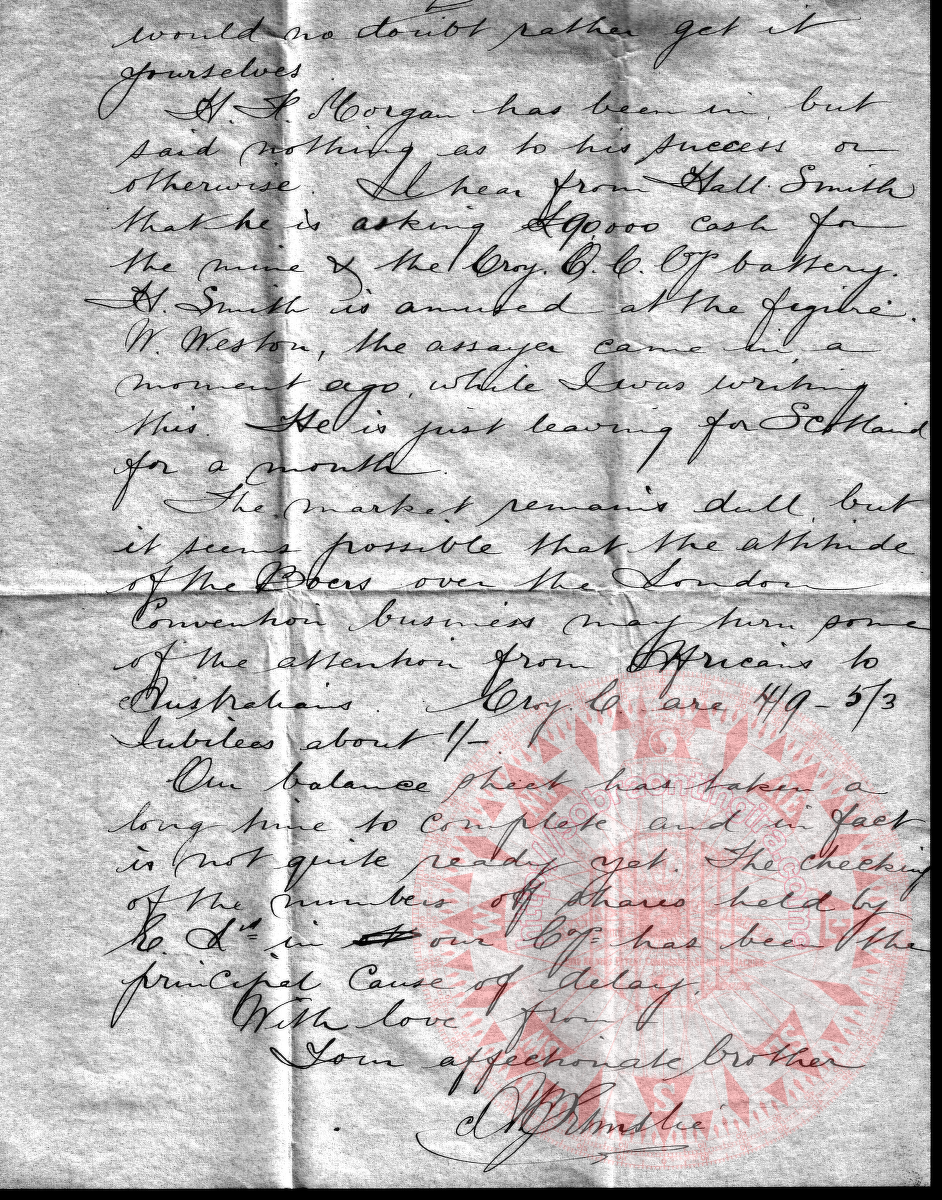 would no doubt rather get it
yourselves
H. F. Morgan has been in, but
said nothing as to his success or
otherwise. I hear from Hall Smith
that he is asking £90000 cash for
the mine & the Croy. G. C. Coy battery.
H. Smith is amused at the figure.
W. Weston, the assayer came in a
moment ago, while I was writing
this. He is just leaving for Scotland
for a month.
The market remains dull, but
it seems possible that the attitude
of the Boers over the London
Convention business may turn some
of the attention from S Africans to
Australians. Croy. C. are 4/9 - 5/3
Jubilees about 1/-
Our balance sheet has taken a
long time to complete and in fact
is not quite ready yet. The checking
of the numbers off shares held by
in our Coy has been the
principal cause of delay.
With love from
Your affectionate brother